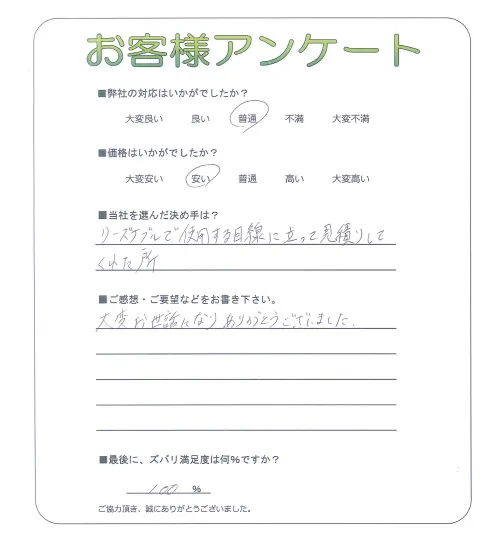 お客様アンケート
■弊社の対応はいかがでしたか？
大変良い 良い 普通 不満 大変不満
■価格はいかがでしたか？
大変安い 安い 普通 高い 大変高い
■当社を選んだ決め手は？
リーズナブルで使用する目線に立って見積りして
くれた所
■ご感想・ご要望などをお書き下さい。
大変お世話になりありがとうございました.
■最後に、ズバリ満足度は何％ですか？
100 %
ご協力頂き、誠にありがとうございました。